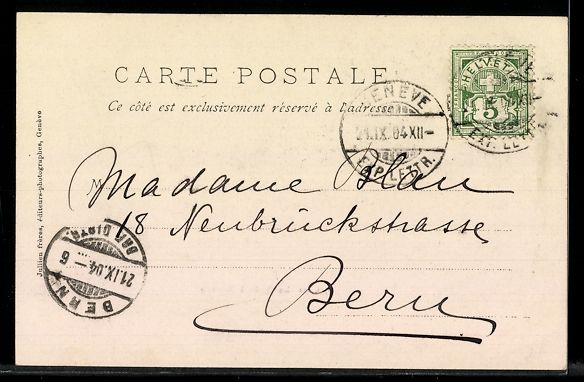 CARTE POSTALE
Ce côté est exclusivement réservé à l'adresse
HELVETIA
5
GENÈVE
21.IX.04 XII-
EXP. LETTR.
EXP. LETTR.
M
Madame Blau
18 Neubrückstrasse
Bern
BERN
21.IX.04.-6
BRF. DISTR.
Jullien frères, éditeurs-photographes, Genève